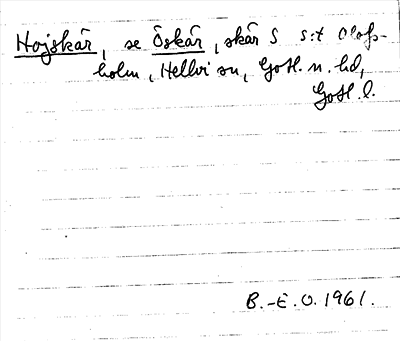 Hojskär, se Öskär, skär S s:t Olofs-
holm, Hellvi sn, Gotl. n. hd,
Gotl. l.
B.-E.O. 1961.